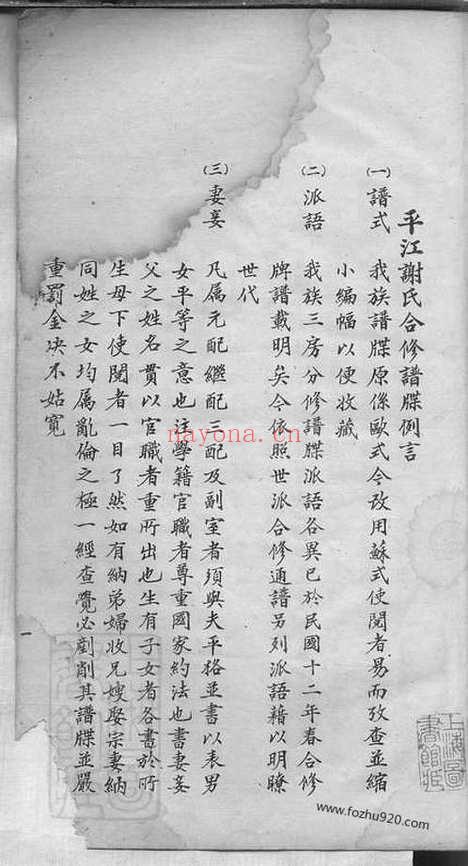 平江謝氏合修譜牒例言
㈠譜式 我族譜牒原係歐式今改用蘇式使閱者易而攷查並縮
小編幅以便收藏
㈡派語 我族三房分修譜牒派語各異已於民國十二年春合修
牌譜載明矣今依照世派合修通譜另列派語藉以明瞭
世代
㈢妻妾 凡属元配繼配三配及副室者須與夫平格並書以表男
女平等之意也注學籍官職者尊重國家約法也書妻妾
父之姓名貫以官職者重所出也生有子女者各書於所
生母下使閱者一目了然如有納弟婦收兄嫂娶宗妻納
同姓之女均属亂倫之極一經查覺必剷削其譜牒並嚴
重罰金决不姑寬
nayona.cn
上海圖書館藏
www.fozhu920.com